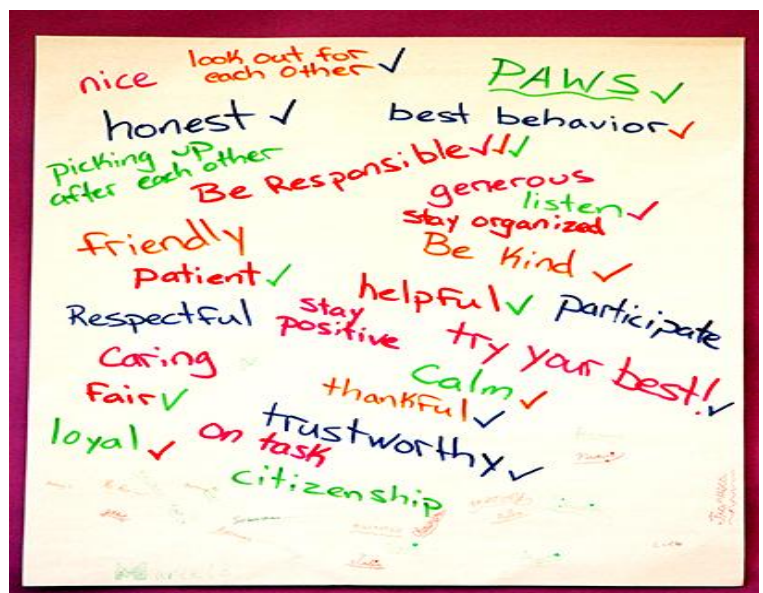 nice
look out for
each other ✓
PAWS ✓
honest ✓
best behavior ✓
picking up
after each other
Be Responsible ✓✓✓
generous
listen ✓
stay organized
friendly
Be Kind ✓
patient ✓
helpful ✓
participate
Respectful
stay
positive
try your best! ✓
Caring
Calm ✓
Fair ✓
thankful ✓
loyal ✓
on task
trustworthy ✓
citizenship